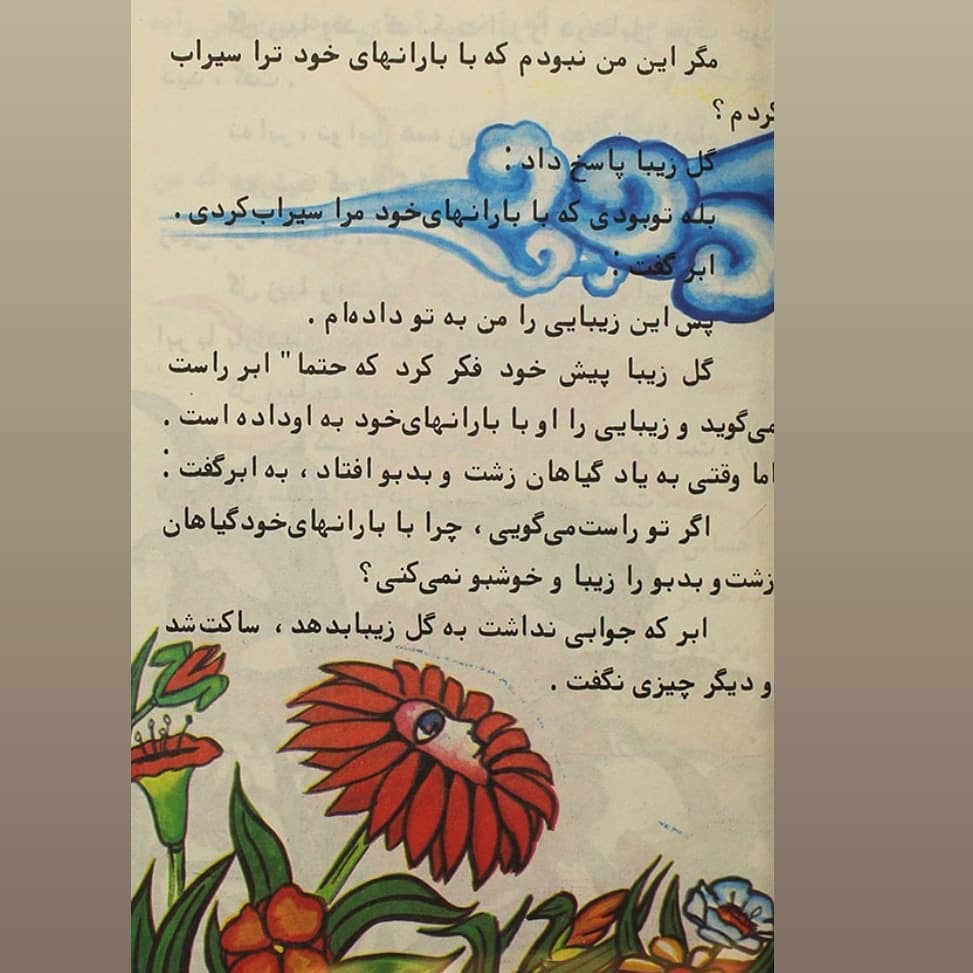 مگر این من نبودم که با بارانهای خود ترا سیراب
کردم ؟
گل زیبا پاسخ داد :
بله توبودی که با بارانهای‌خود مرا سیراب‌کردی .
ابر گفت :
پس این زیبایی را من به تو داده‌ام .
گل زیبا پیش خود فکر کرد که حتما" ابر راست
می‌گوید و زیبایی را او با بارانهای‌خود به اوداده است .
اما وقتی به یاد گیاهان زشت و بدبو افتاد ، به ابرگفت :
اگر تو راست‌می‌گویی ، چرا با بارانهای‌خودگیاهان
زشت‌و بدبو را زیبا و خوشبو نمی‌کنی ؟
ابر که جوابی نداشت به گل زیبابدهد ، ساکت‌شد
و دیگر چیزی نگفت .